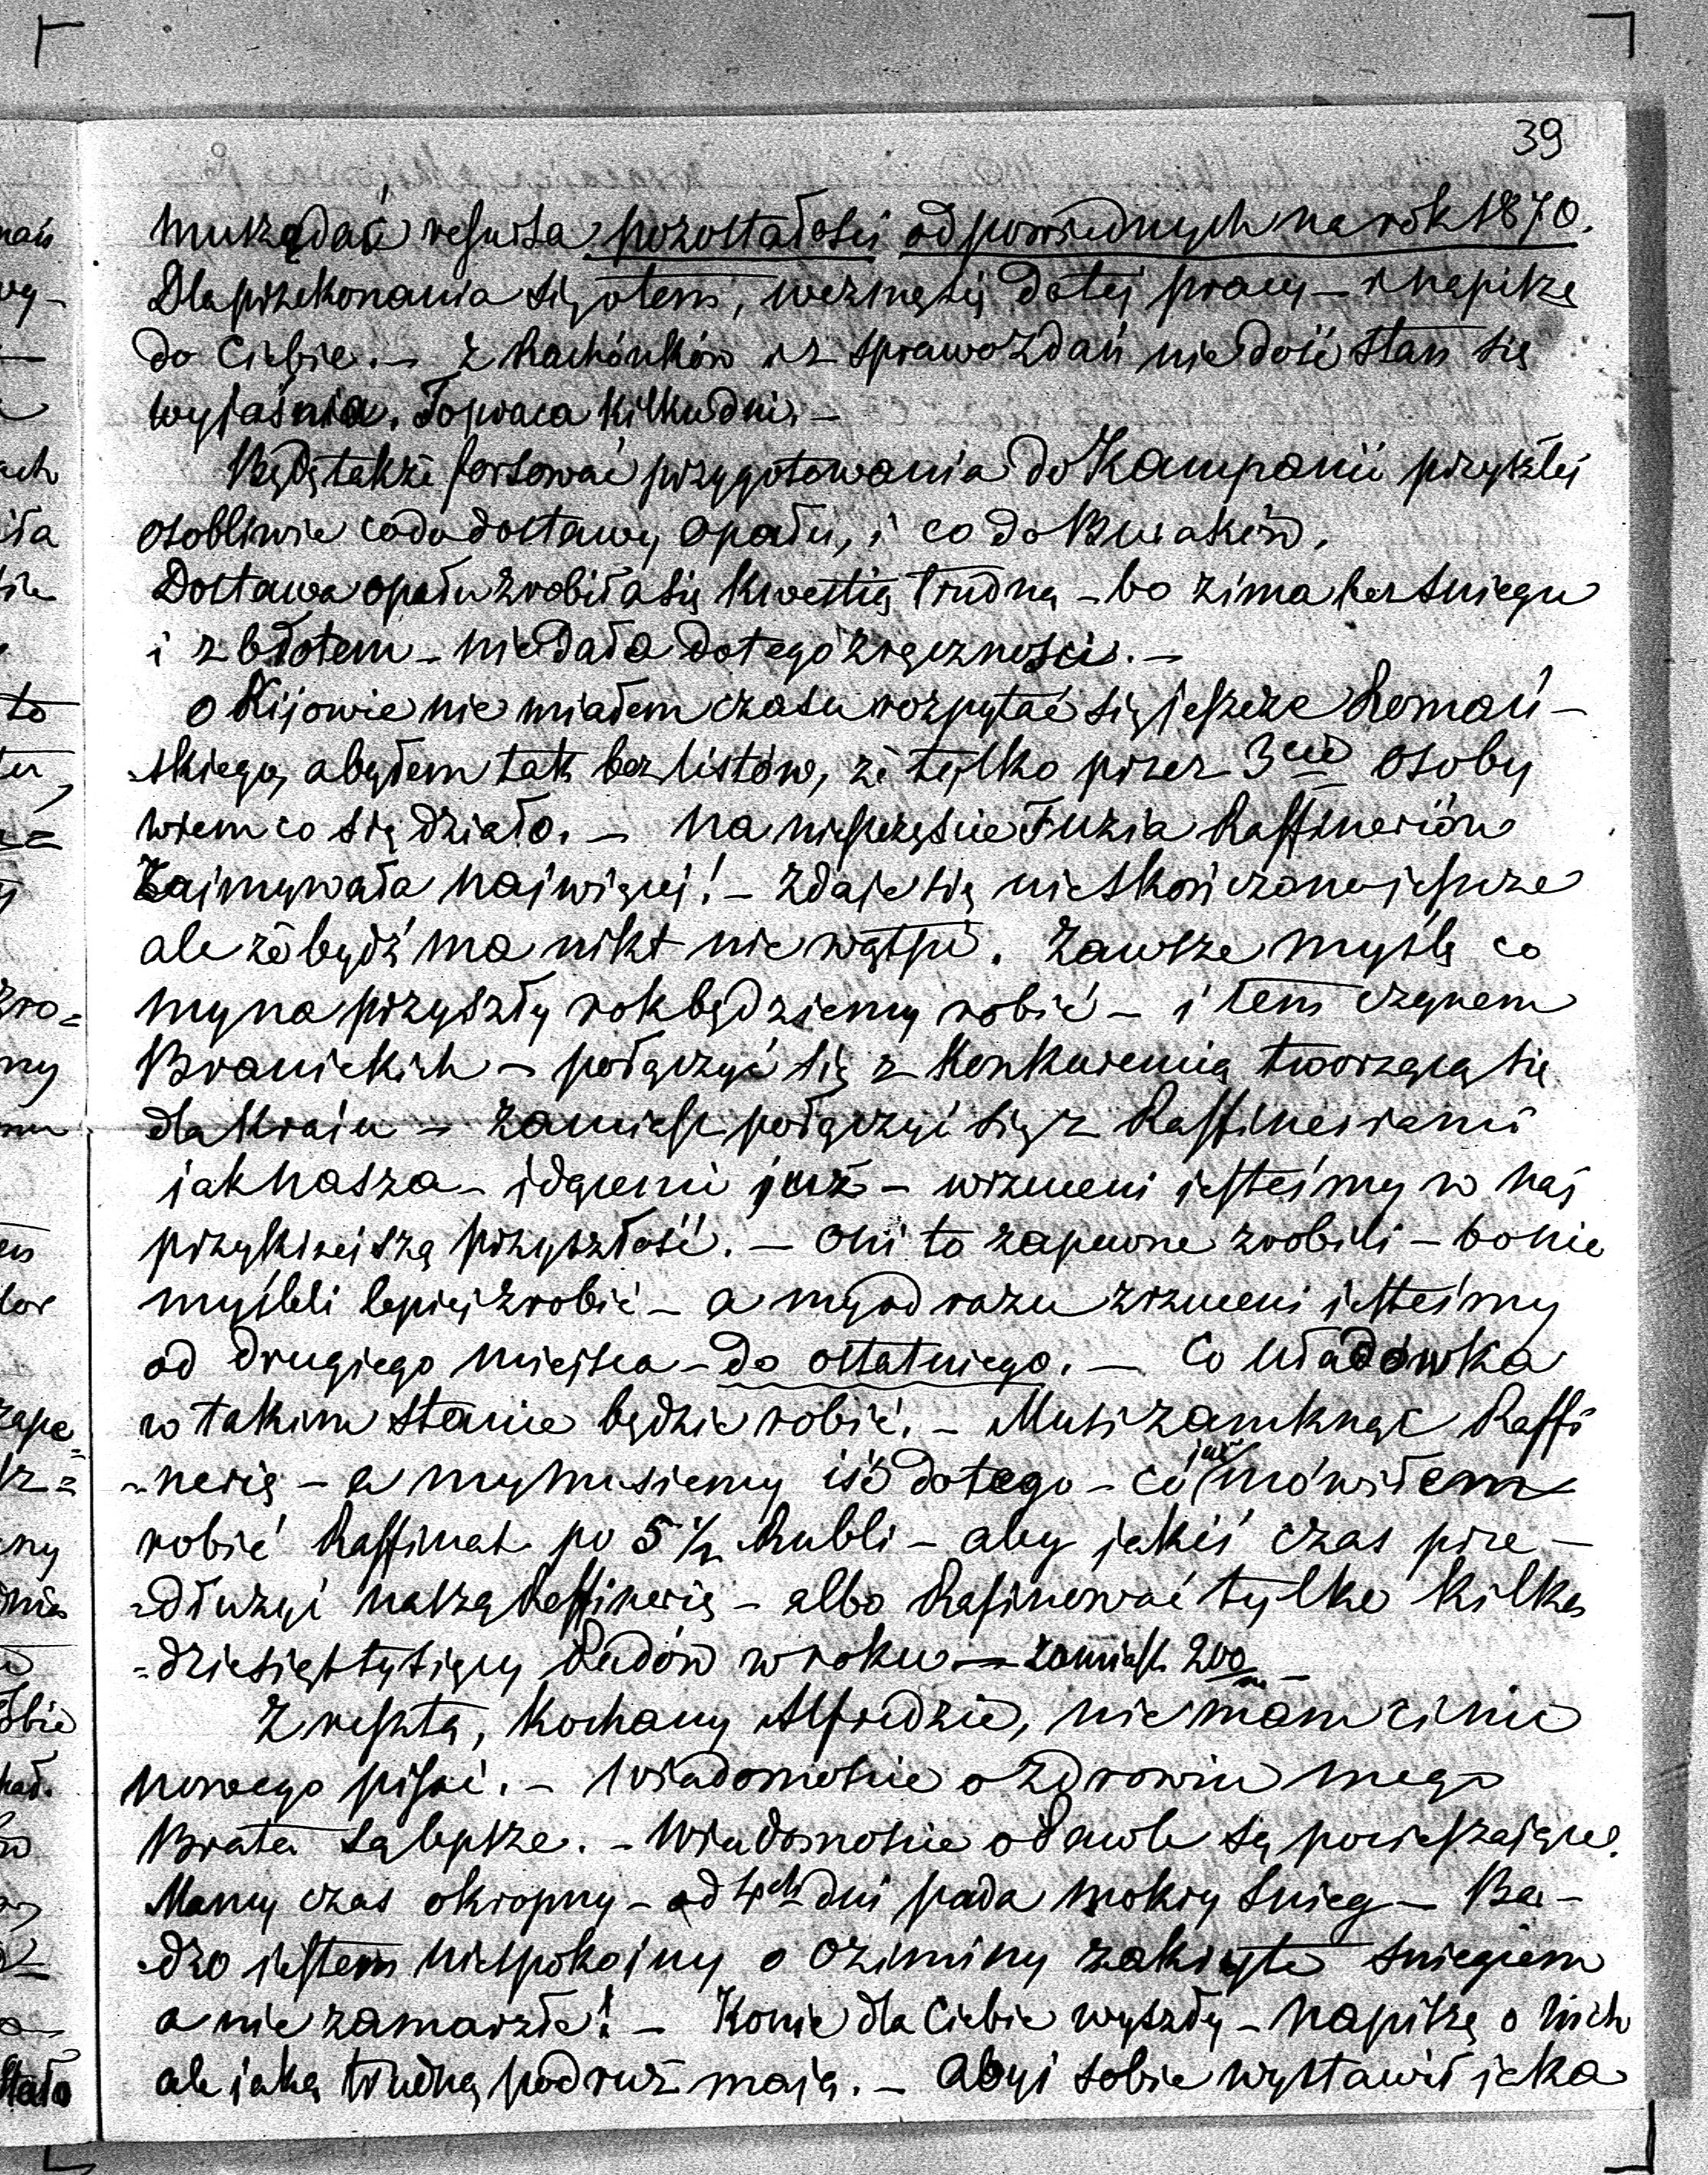 39
mu żądać resursa pozostałości odpowiednych na rok 1870.
Dla przekonania się o tem, wezmę się do tej pracy – i napiszę
do Ciebie. – Z Rachónków i z sprawozdań nie dość stan się
wyjaśnia. To praca kilku dni. –
Będę także forsować przygotowania do Kampanii przyszłej
osobliwie co do dostawy opału, i co do Buraków.
Dostawa opału zrobiła się kwestią trudną – bo zima bez śniegu
i z błotem – nie dała do tego zręczności. –
O Kijowie nie miałem czasu rozpytać się jeszcze Romań –
skiego, a byłem tak bez listów, że tylko przez 3cie osoby
wiem co się działo. – Na nieszczęście Fuzia Raffinerión
Zajmywała najwięcej! – Zdaje się nieskończona jeszcze
ale że bydź ma nikt nie wątpi. Zawsze myślę co
my na przyszły rok będziemy robić – i tem czynem
Branickich – połączyć się z Konkurencią tworzącą się
dla Kraju – zamiast połączyć się z Raffineriami
jak nasza – idącemi już – wrzuceni jesteśmy w naj
przykrzejszą przyszłość. – Oni to zapewne zrobili – bo nie
myśleli lepiej zrobić – a my od razu zrzuceni jesteśmy
od drugiego miejsca – do ostatniego. – Co Uładówka
w takim stanie będzie robić. – Musi zamknąć Raffi
– nerię – a my musiemy iść do tego – co już mówiłem
robić Raffinat po 5 1/2 Rubli – aby jakiś czas prze –
=dłużyć naszą Raffinerię – albo Rafinować tylko kilka
=dziesiąt tysięcy Pudów w roku – zamiast 200/m –
Z resztą, Kochany Alfredzie, nie mam ci nic
nowego pisać. – Wiadomoście o zdrowiu mego
Brata są lepsze. – Wiadomoście o Pawle są pocieszające.
Mamy czas okropny – od 4ch dni pada mokry śnieg – Ba –
=dzo jestem niespokojny o oziminy zakryte śniegiem
a nie zamarzłe! – Konie dla Ciebie wyszły – napiszę o nich
ale jaką trudną podruż mają. – Abyś sobie wystawił jaka